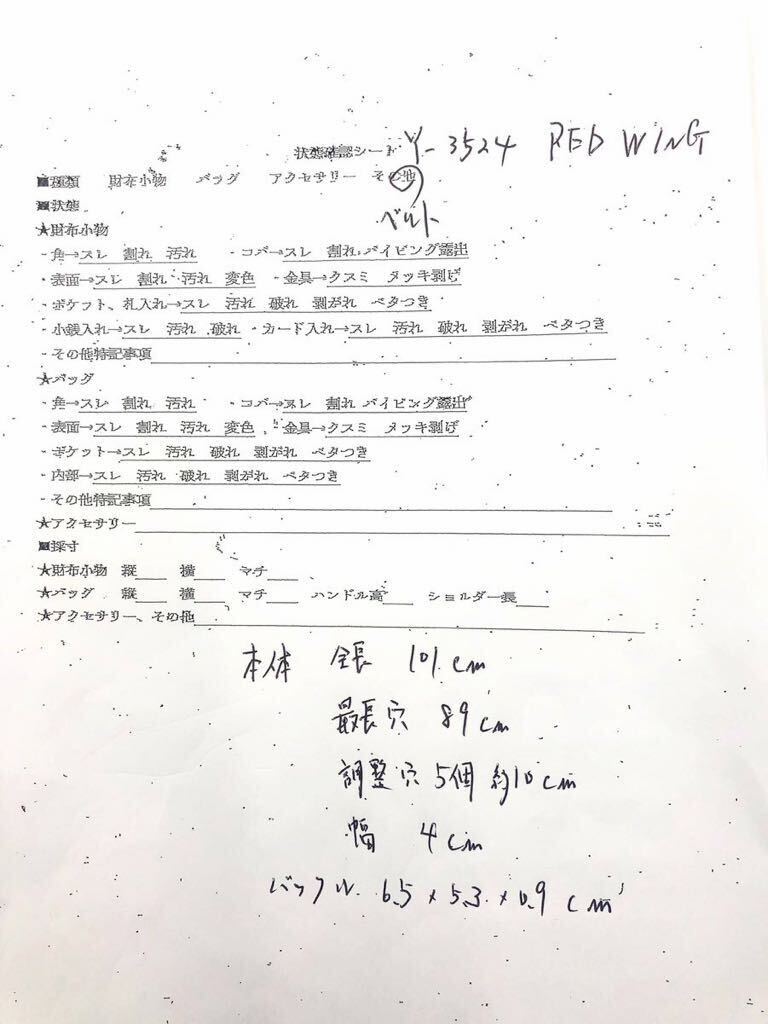 状態確認シート Y-3524 RED WING
■種類 財布小物 バッグ アクセサリー その他
ベルト
■状態
★財布小物
・角→スレ 割れ 汚れ ・コバ→スレ 割れ パイピング露出
・表面→スレ 割れ 汚れ 変色 ・金具→クスミ メッキ剥げ
・ポケット、札入れ→スレ 汚れ 破れ 剥がれ ベタつき
・小銭入れ→スレ 汚れ 破れ ・カード入れ→スレ 汚れ 破れ 剥がれ ベタつき
・その他特記事項
★バッグ
・角→スレ 割れ 汚れ ・コバ→スレ 割れ パイピング露出
・表面→スレ 割れ 汚れ 変色 ・金具→クスミ メッキ剥げ
・ポケット→スレ 汚れ 破れ 剥がれ ベタつき
・内部→スレ 汚れ 破れ 剥がれ ベタつき
・その他特記事項
★アクセサリー
■採寸
★財布小物 縦 横 マチ
★バッグ 縦 横 マチ ハンドル高 ショルダー長
★アクセサリー、その他
本体 全長 101cm
最長穴 89cm
調整穴 5個 約10cm
幅 4cm
バックル 6.5×5.3×0.9cm